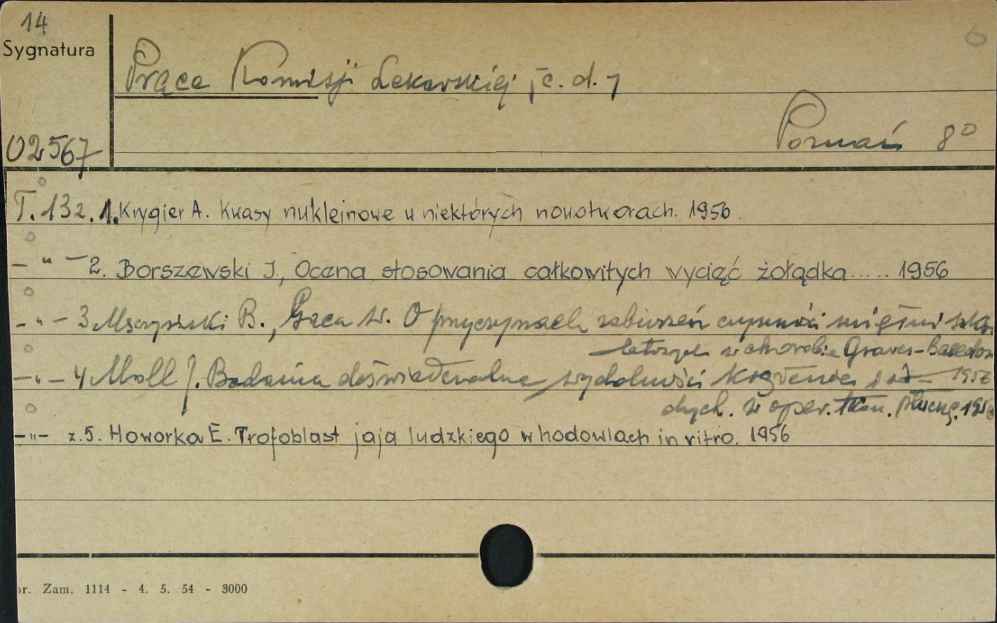 14
Sygnatura
6
Prace Komisji Lekarskiej [c. d.]
Poznań 8°
02567
T. 13 z. 1. Krygier A. Kwasy nukleinowe w niektórych nowotworach. 1956.
– " – 2. Borszewski J., Ocena stosowania całkowitych wycięć żołądka..... 1956
– " – 3 B., Gaca W. O przyczynach zaburzeń czynności mięśni szkie-
letowych w chorobie Graves-Basedow
– " – 4 Moll J. Badania doświadczalne wydolności krążenia i od- 1956
dych. w oper. tkan. płucnej. 1956
– " – z. 5. Howorka E. Trofoblast jaja ludzkiego w hodowlach in vitro. 1956
nr. Zam. 1114 - 4. 5. 54 - 3000